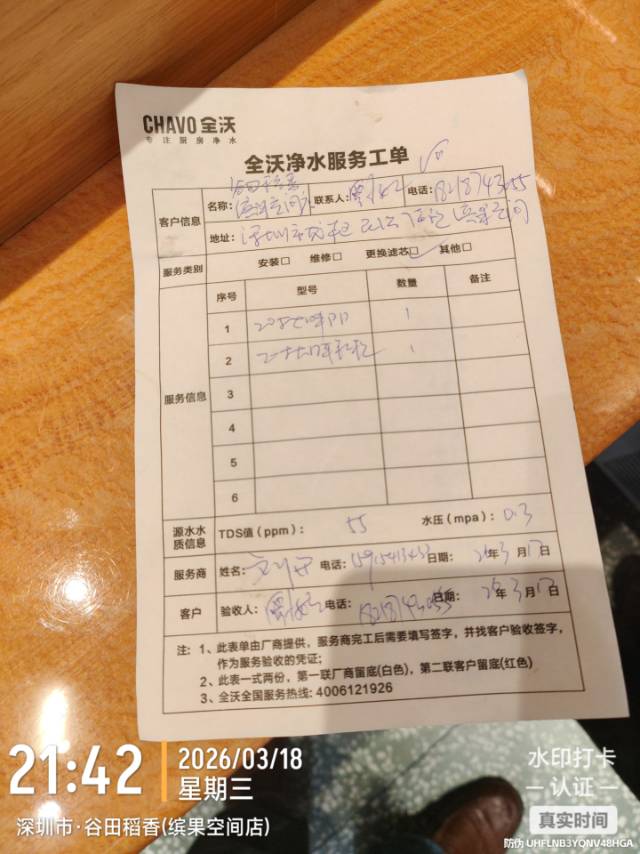 CHAVO 全沃
专注厨房净水
全沃净水服务工单
客户信息
名称: 谷田稻香 缤果空间店 联系人: 电话:
地址: 深圳市 缤果空间
服务类别 安装□ 维修□ 更换滤芯☑ 其他□
服务信息
序号 型号 数量 备注
1 20寸 PP 1
2 20寸 1
3
4
5
6
源水水质信息 TDS值（ppm）: 55 水压（mpa）: 0.3
服务商 姓名: 电话: 日期: 26年3月17日
客户 验收人: 电话: 日期: 26年3月17日
注: 1、此表单由厂商提供，服务商完工后需要填写签字，并找客户验收签字，
作为服务验收的凭证;
2、此表一式两份，第一联厂商留底(白色)，第二联客户留底(红色)
3、全沃全国服务热线: 4006121926
21:42
2026/03/18
星期三
深圳市·谷田稻香(缤果空间店)
水印打卡
认证
真实时间
防伪 UHFLNB3YQNV48HGA